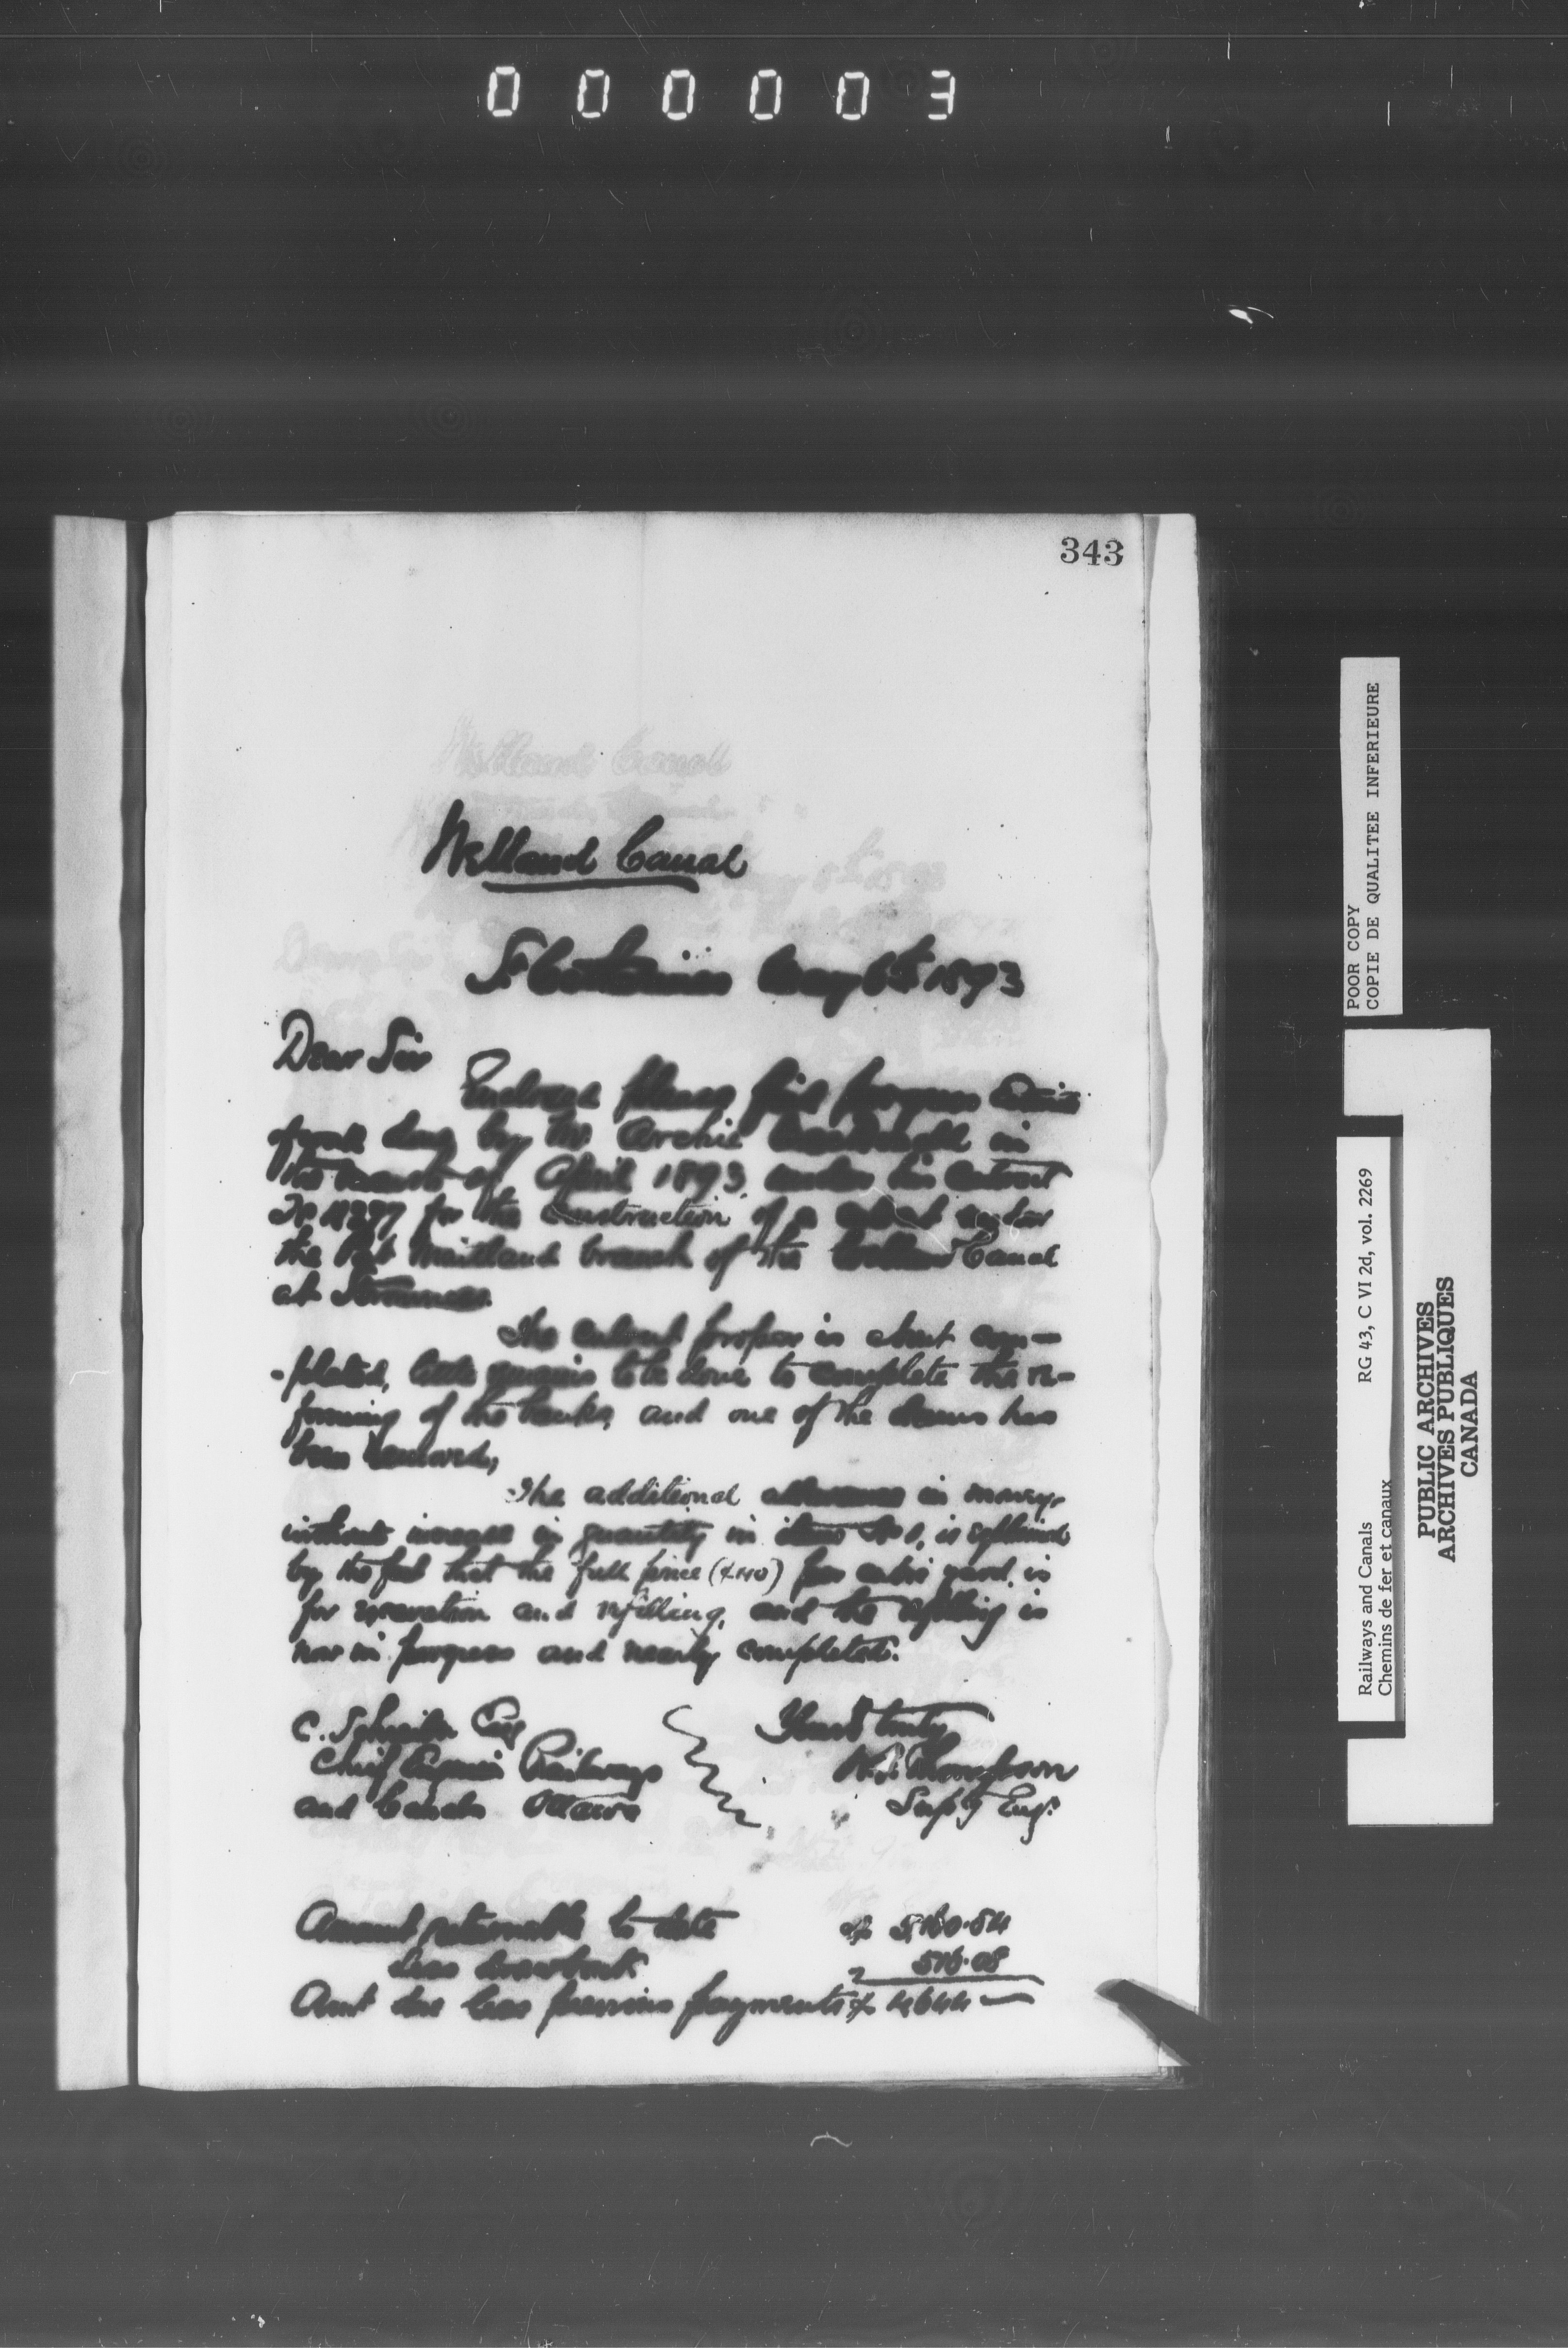 000003
343
Welland Canal
St Catharines May 6th 1893
Dear Sir
Enclosed please find progress
of work done by Mr Archie in
the month of April 1893 under his contract
for the construction of a culvert under
the Port Maitland branch of the Welland Canal
at Stromness.
The culvert proper is about com-
-pleted, little remains to be done to complete the re-
forming of the banks, and one of the dams has
been removed,
The additional allowance in money,
without increase in quantity in item No 1, is explained
by the fact that the full price per cubic yard, is
for excavation and refilling, and the refilling is
now in progress and nearly completed.
C. Schreiber Esq
Chief Engineer Railways
and Canals Ottawa
Yours truly
Thompson
Supt'g Engr
Amount returnable to date $ 5,160.54
Less drawback 516.08
Amt due less previous payments $ 4644 —
POOR COPY
COPIE DE QUALITEE INFERIEURE
Railways and Canals RG 43, C VI 2d, vol. 2269
Chemins de fer et canaux
PUBLIC ARCHIVES
ARCHIVES PUBLIQUES
CANADA